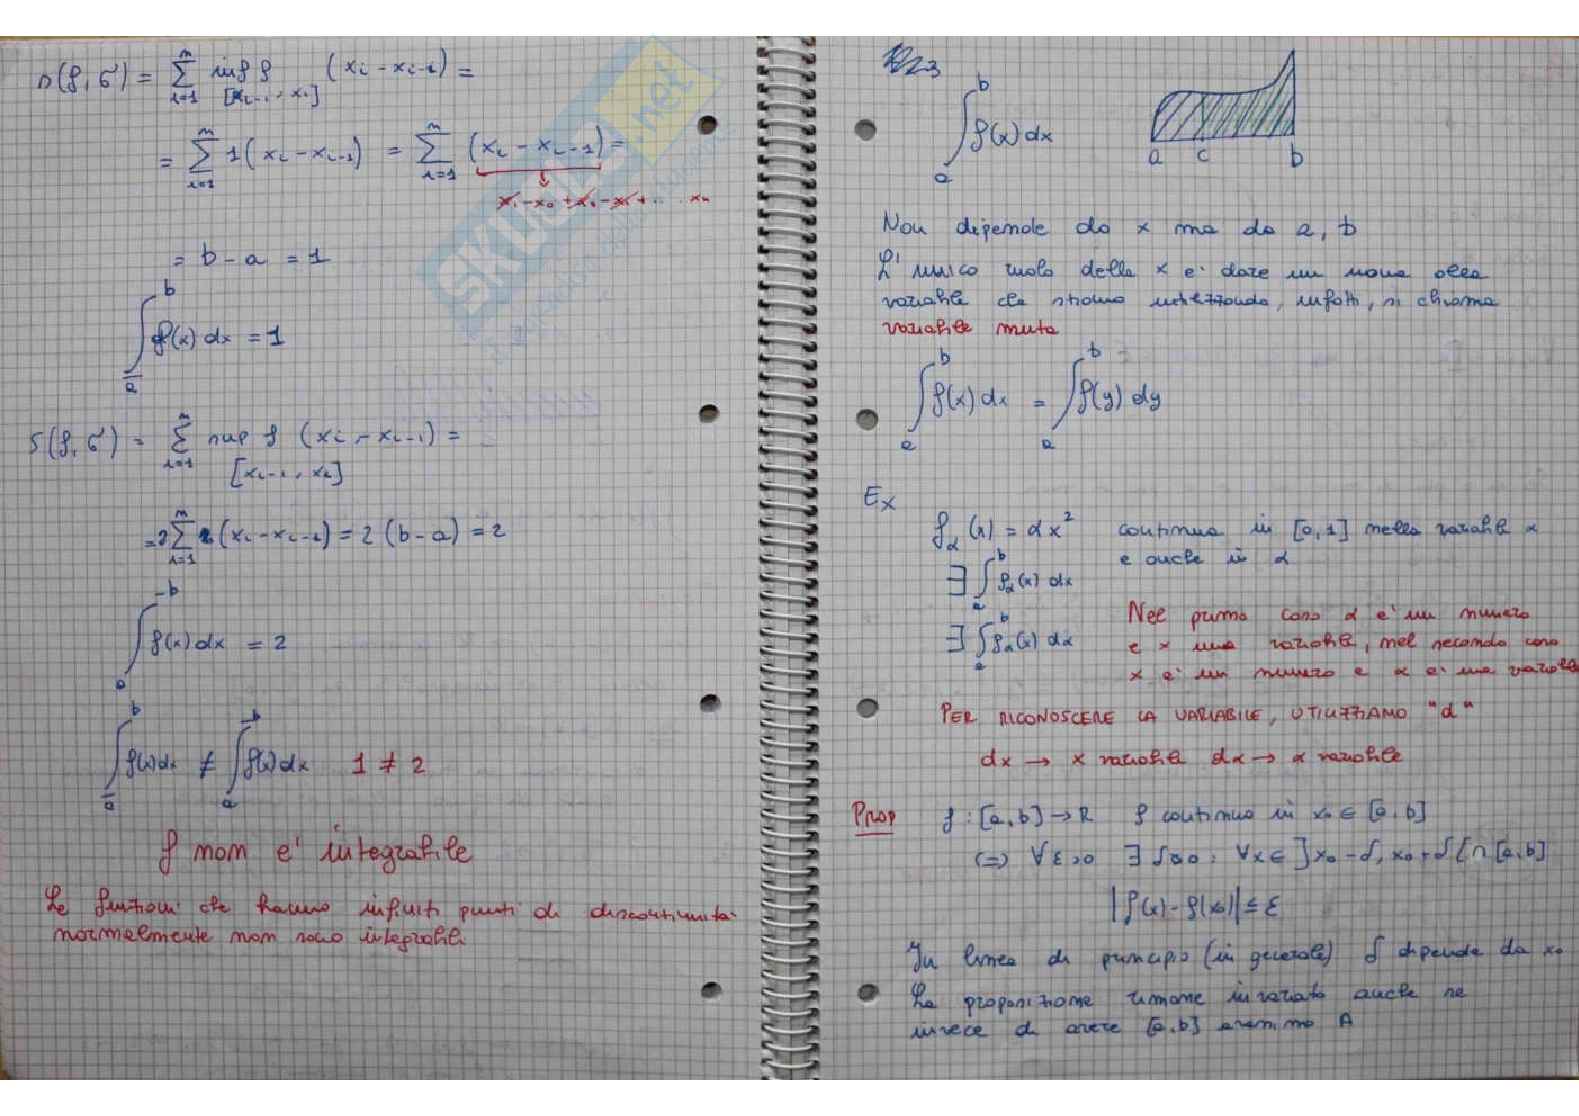 s(f,σ) = Σ_{i=1}^{n} inf f [x_{i-1}, x_i] (x_i - x_{i-1}) =
= Σ_{i=1}^{n} 1 (x_i - x_{i-1}) = Σ_{i=1}^{n} (x_i - x_{i-1}) =
x_1 - x_0 + x_2 - x_1 + ... x_n
= b - a = 1
∫_a^b f(x) dx = 1
S(f,σ) = Σ_{i=1}^{n} sup f (x_i - x_{i-1}) =
[x_{i-1}, x_i]
= 2 Σ_{i=1}^{n} (x_i - x_{i-1}) = 2 (b - a) = 2
∫_a^b f(x) dx = 2
∫_a^b f(x) dx ≠ ∫_a^b f(x) dx 1 ≠ 2
f non e' integrabile
Le funzioni che hanno infiniti punti di discontinuita'
normalmente non sono integrabili
SKUOLA.net
∫_a^b f(x) dx
a c b
Non dipende da x ma da a, b
L'unico ruolo della x e' dare un nome alla
variabile che stiamo utilizzando, infatti, si chiama
variabile muta
∫_a^b f(x) dx = ∫_a^b f(y) dy
Ex
f_α(x) = αx² continua in [0,1] nella variabile x
e anche in α
∃ ∫_a^b f_α(x) dx
∃ ∫_a^b f_α(x) dα
Nel primo caso α e' un numero
e x una variabile, nel secondo caso
x e' un numero e α e' una variabile
PER RICONOSCERE LA VARIABILE, UTILIZZIAMO "d"
dx → x variabile dα → α variabile
Prop f : [a,b] → R f continua in x₀ ∈ [a,b]
(=) ∀ε>0 ∃ δ>0 : ∀x ∈ ]x₀-δ, x₀+δ[ ∩ [a,b]
|f(x) - f(x₀)| ≤ ε
In linea di principio (in generale) δ dipende da x₀
La proposizione rimane invariata anche se
invece di avere [a,b] avessimo A